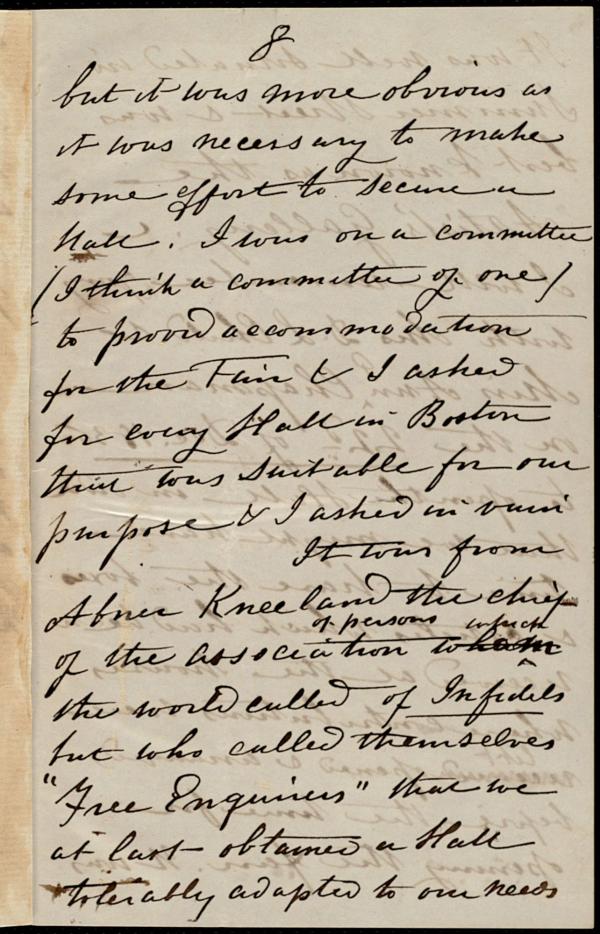 8
but it was more obvious as
it was necessary to make
some effort to secure a
Hall. I was on a committee
(I think a committee of one)
to provid accommodation
for the Fair & I asked
for every Hall in Boston
that was suitable for our
purpose & I asked in vain
It was from
Abner Kneeland the chief
of persons which
of the association whom
the world called of Infidels
but who called themselves
"Free Enquirers" that we
at last obtained a Hall
tolerably adapted to our needs